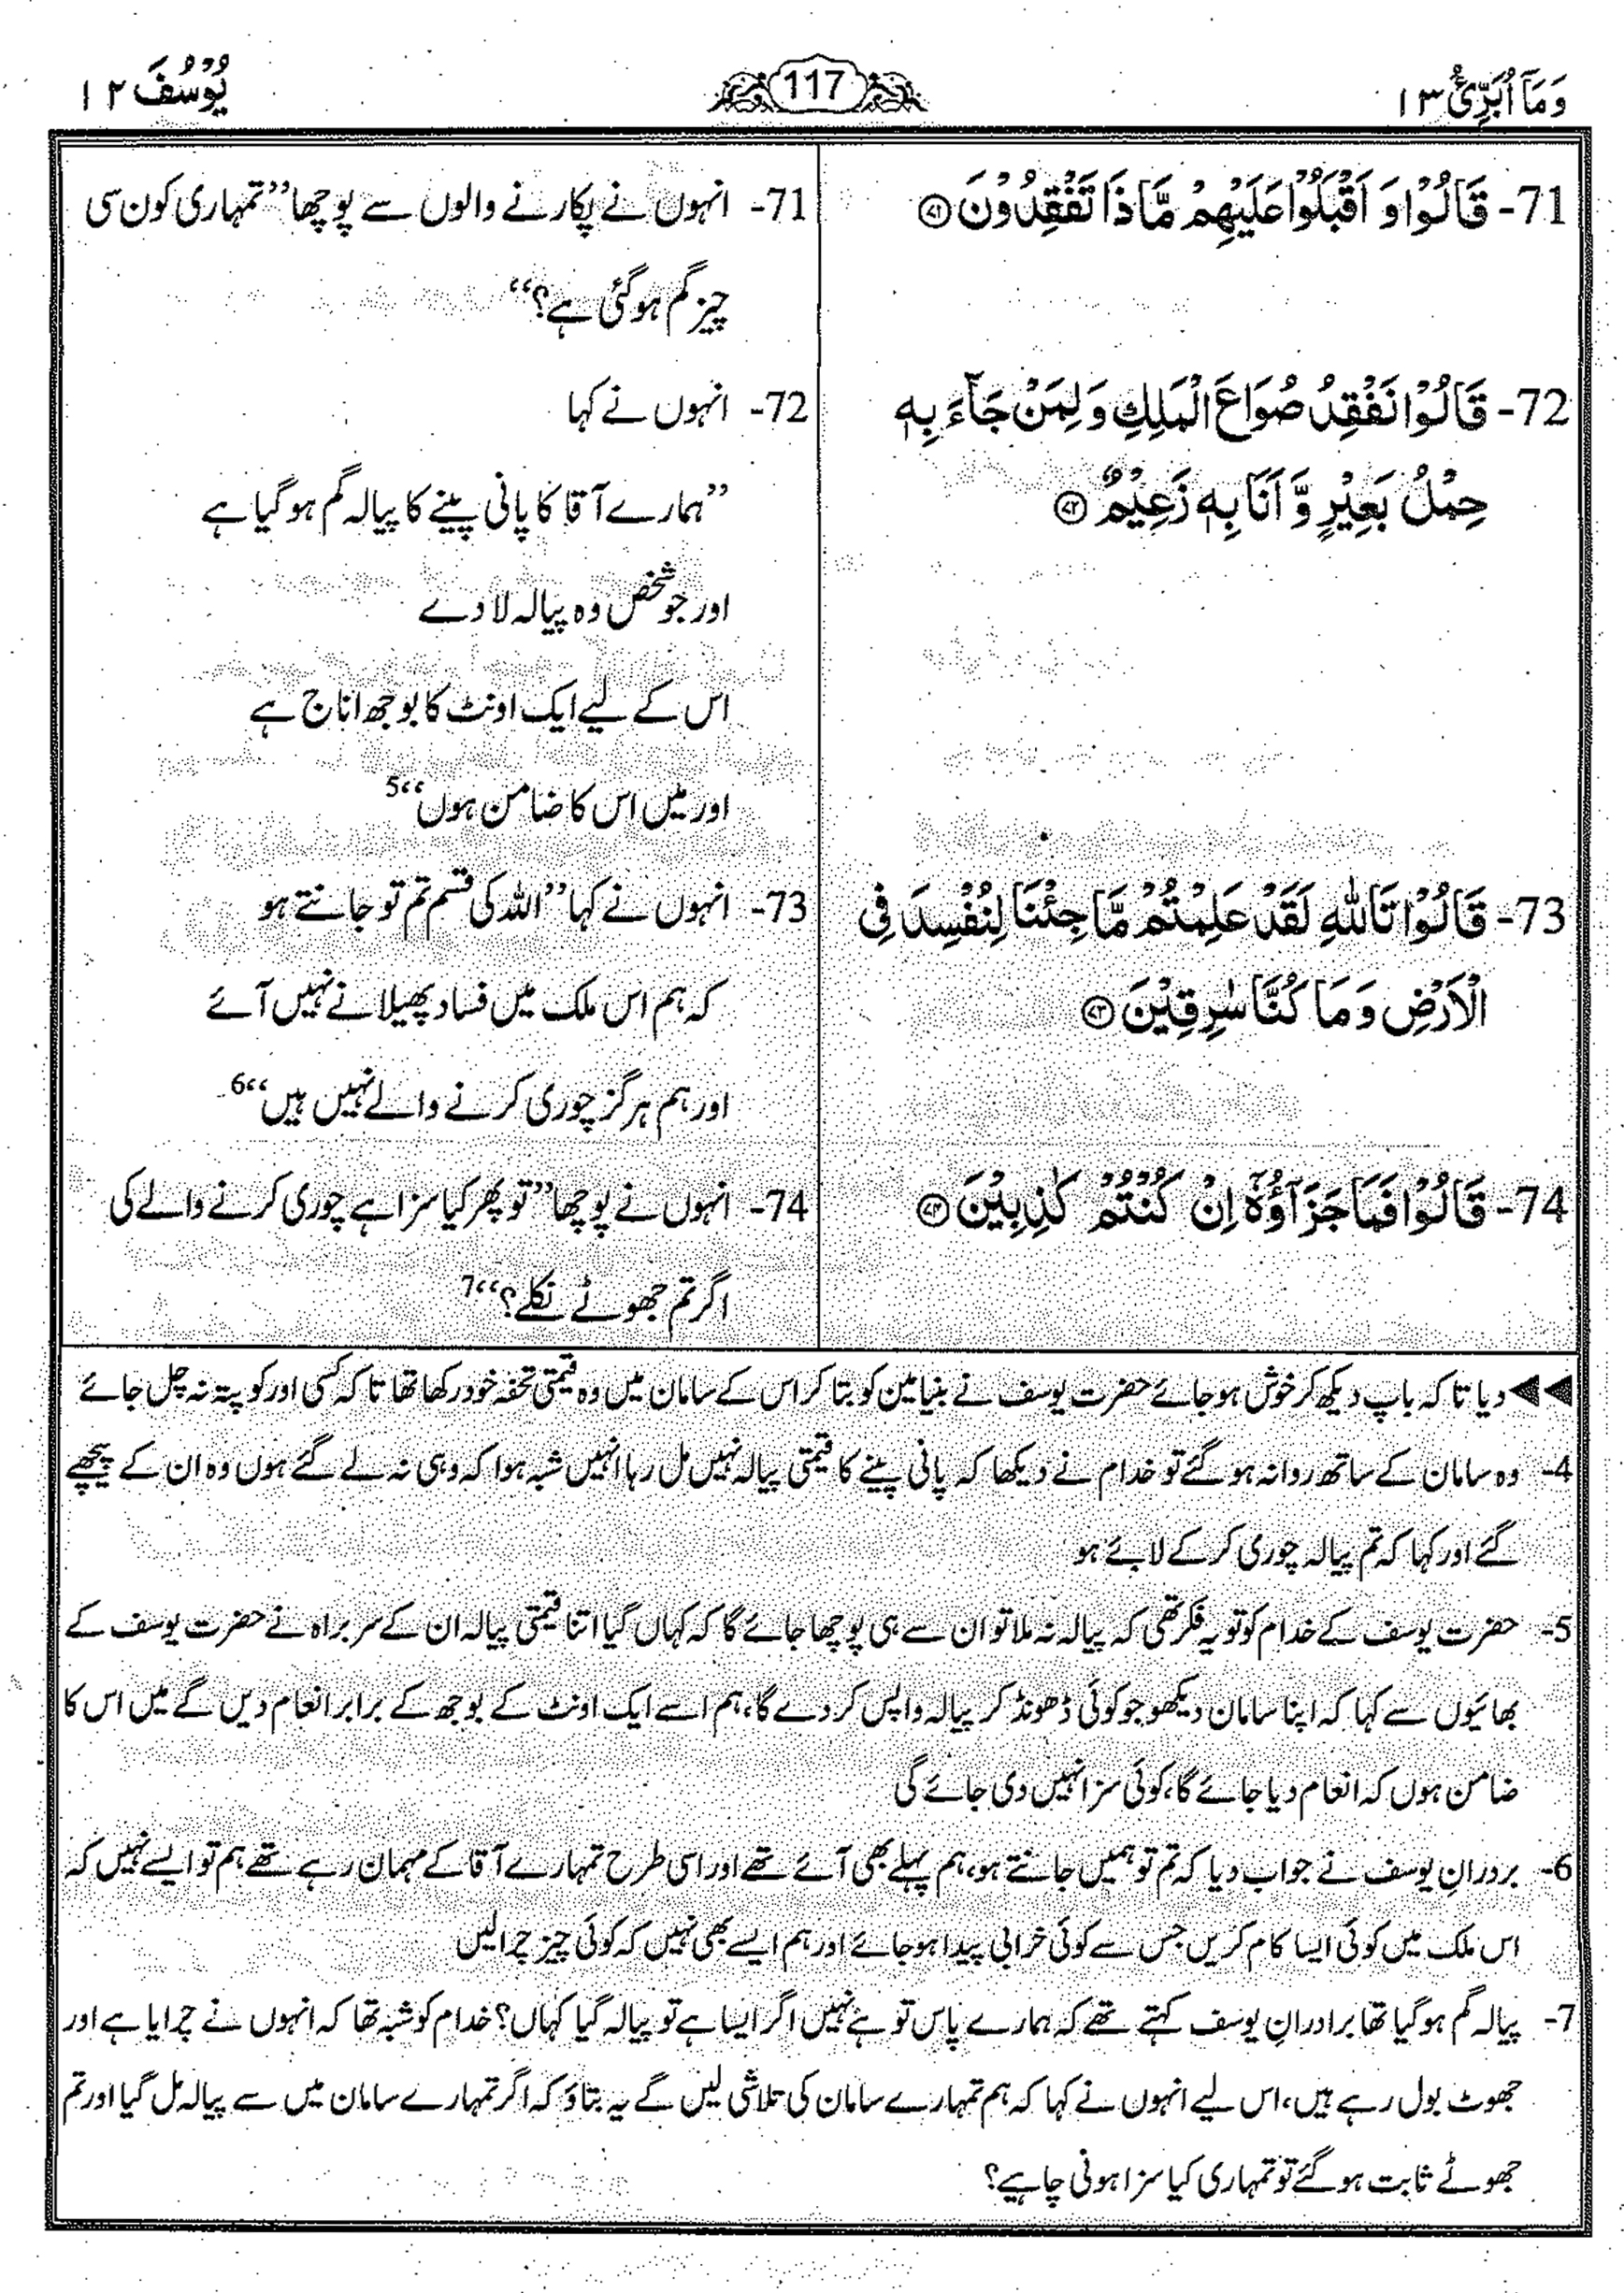 وَمَآ اُبَرِّئُ ۱۳
117
يُوْسُفَ ۱۲
71- قَالُوْا وَ اَقْبَلُوْا عَلَيْهِمْ مَّا ذَا تَفْقِدُوْنَ ﴿۷۱﴾
72- قَالُوْا نَفْقِدُ صُوَاعَ الْمَلِكِ وَ لِمَنْ جَآءَ بِهٖ
حِمْلُ بَعِيْرٍ وَّ اَنَا بِهٖ زَعِيْمٌ ﴿۷۲﴾
73- قَالُوْا تَاللّٰهِ لَقَدْ عَلِمْتُمْ مَّا جِئْنَا لِنُفْسِدَ فِى
الْاَرْضِ وَ مَا كُنَّا سٰرِقِيْنَ ﴿۷۳﴾
74- قَالُوْا فَمَا جَزَآؤُهٗٓ اِنْ كُنْتُمْ كٰذِبِيْنَ ﴿۷۴﴾
71- انہوں نے پکارنے والوں سے پوچھا ’’تمہاری کون سی
چیز گم ہوگئی ہے؟‘‘
72- انہوں نے کہا
’’ہمارے آقا کا پانی پینے کا پیالہ گم ہو گیا ہے
اور جو شخص وہ پیالہ لا دے
اس کے لیے ایک اونٹ کا بوجھ اناج ہے
اور میں اس کا ضامن ہوں‘‘5
73- انہوں نے کہا ’’اللہ کی قسم تم تو جانتے ہو
کہ ہم اس ملک میں فساد پھیلانے نہیں آئے
اور ہم ہرگز چوری کرنے والے نہیں ہیں‘‘6
74- انہوں نے پوچھا ’’تو پھر کیا سزا ہے چوری کرنے والے کی
اگر تم جھوٹے نکلے؟‘‘7
◀◀ دیا تاکہ باپ دیکھ کر خوش ہو جائے حضرت یوسف نے بنیامین کو بتا کر اس کے سامان میں وہ قیمتی تحفہ خود رکھا تھا تاکہ کسی اور کو پتہ نہ چل جائے
4- وہ سامان کے ساتھ روانہ ہو گئے تو خدام نے دیکھا کہ پانی پینے کا قیمتی پیالہ نہیں مل رہا انہیں شبہ ہوا کہ وہی نہ لے گئے ہوں وہ ان کے پیچھے
گئے اور کہا کہ تم پیالہ چوری کر کے لائے ہو
5- حضرت یوسف کے خدام کو تو یہ فکر تھی کہ پیالہ نہ ملا تو ان سے ہی پوچھا جائے گا کہ کہاں گیا اتنا قیمتی پیالہ ان کے سربراہ نے حضرت یوسف کے
بھائیوں سے کہا کہ اپنا سامان دیکھو جو کوئی ڈھونڈ کر پیالہ واپس کر دے گا، ہم اسے ایک اونٹ کے بوجھ کے برابر انعام دیں گے میں اس کا
ضامن ہوں کہ انعام دیا جائے گا، کوئی سزا نہیں دی جائے گی
6- بردرانِ یوسف نے جواب دیا کہ تم تو ہمیں جانتے ہو، ہم پہلے بھی آئے تھے اور اسی طرح تمہارے آقا کے مہمان رہے تھے ہم تو ایسے نہیں کہ
اس ملک میں کوئی ایسا کام کریں جس سے کوئی خرابی پیدا ہو جائے اور ہم ایسے بھی نہیں کہ کوئی چیز چرا لیں
7- پیالہ گم ہو گیا تھا برادرانِ یوسف کہتے تھے کہ ہمارے پاس تو ہے نہیں اگر ایسا ہے تو پیالہ گیا کہاں؟ خدام کو شبہ تھا کہ انہوں نے چرایا ہے اور
جھوٹ بول رہے ہیں، اس لیے انہوں نے کہا کہ ہم تمہارے سامان کی تلاشی لیں گے یہ بتاؤ کہ اگر تمہارے سامان میں سے پیالہ مل گیا اور تم
جھوٹے ثابت ہو گئے تو تمہاری کیا سزا ہونی چاہیے؟